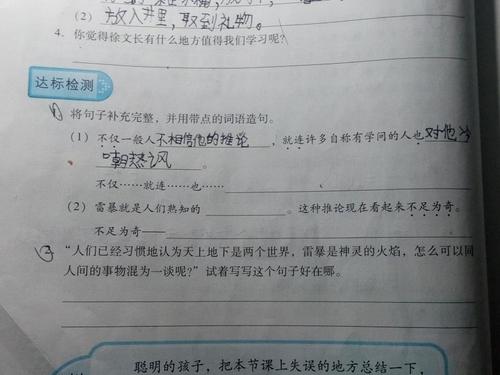 (2) 放入井里,取到礼物。
4. 你觉得徐文长有什么地方值得我们学习呢?
达标检测
1 将句子补充完整,并用带点的词语造句。
(1) 不仅一般人不相信他的推论,就连许多自称有学问的人也对他冷
嘲热讽
不仅……就连……也
(2) 雷暴就是人们熟知的 。这种推论现在看起来不足为奇。
不足为奇——
2 “人们已经习惯地认为天上地下是两个世界,雷暴是神灵的火焰,怎么可以同
人间的事物混为一谈呢?”试着写写这个句子好在哪。
聪明的孩子,把本节课上失误的地方总结一下,